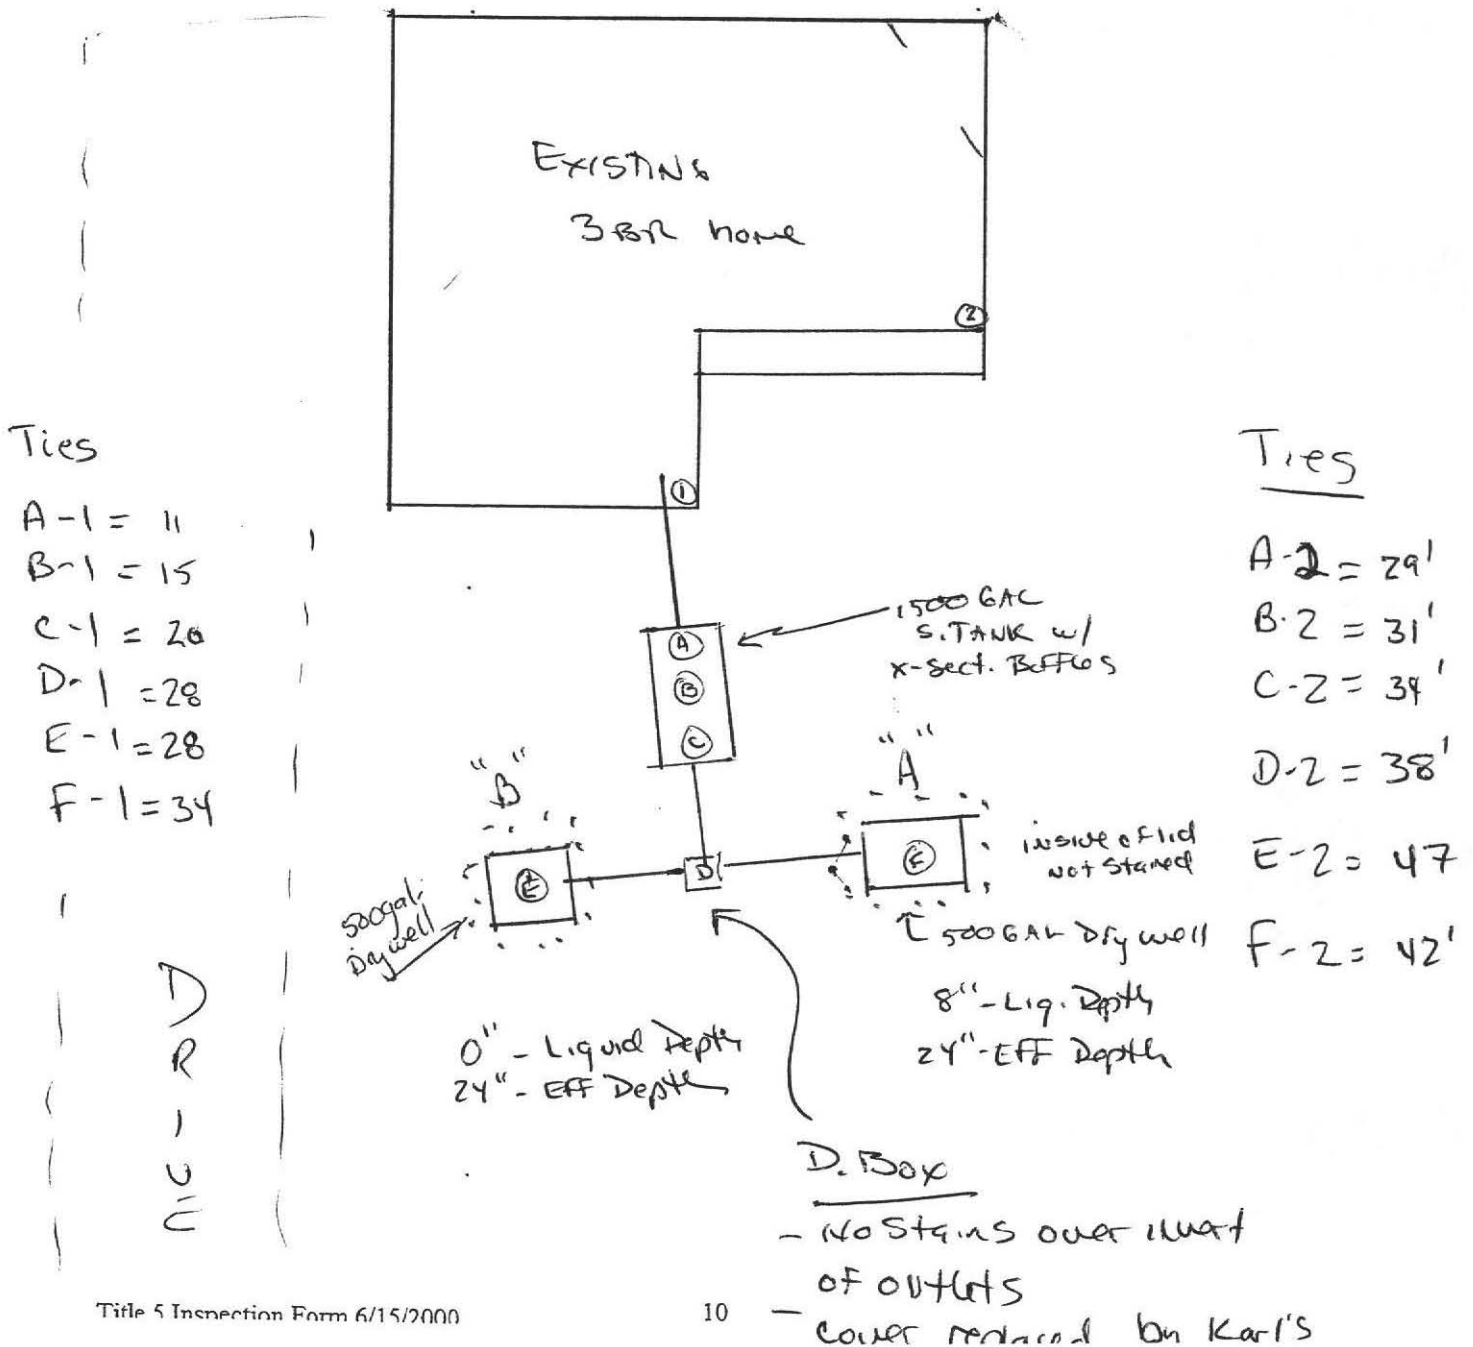 Existing
3 BR home
2
1
Ties
A-1 = 11
B-1 = 15
C-1 = 20
D-1 = 28
E-1 = 28
F-1 = 34
Ties
A-2 = 29'
B-2 = 31'
C-2 = 34'
D-2 = 38'
E-2 = 47
F-2 = 42'
1500 GAL
S. TANK w/
x-sect. Baffles
A
B
C
"B"
"A"
E
D
F
inside of lid
not stained
500 gal.
Drywell
500 GAL Drywell
8" - Liq. Depth
24" - EFF Depth
0" - Liquid Depth
24" - EFF Depth
DRIVE
D. Box
- No Stains over invert
of outlets
- cover replaced by Karl's
Title 5 Inspection Form 6/15/2000
10